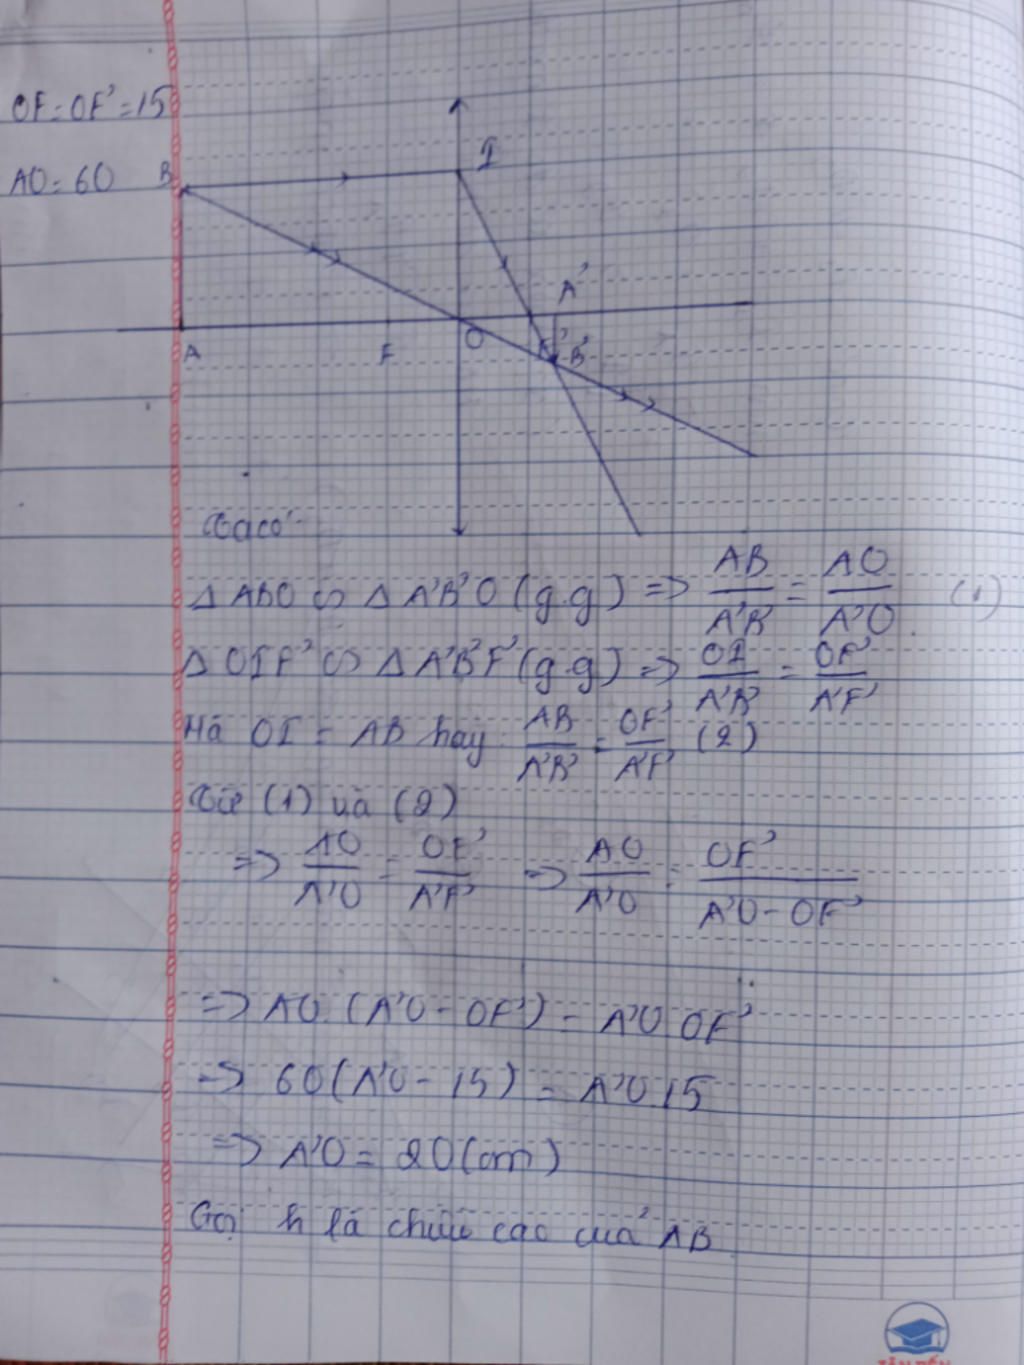 OF = OF' = 15
AO = 60
B
I
A'
A
F
O
F'
B'
Ta có:
Δ ABO ∽ Δ A'B'O (g.g) => AB/A'B' = AO/A'O (1)
Δ OIF' ∽ Δ A'B'F' (g.g) => OI/A'B' = OF'/A'F'
Mà OI = AB hay AB/A'B' = OF'/A'F' (2)
Từ (1) và (2)
=> AO/A'O = OF'/A'F' => AO/A'O = OF'/A'O - OF'
=> AO.(A'O - OF') = A'O.OF'
=> 60(A'O - 15) = A'O 15
=> A'O = 20(cm)
Gọi h là chiều cao của AB